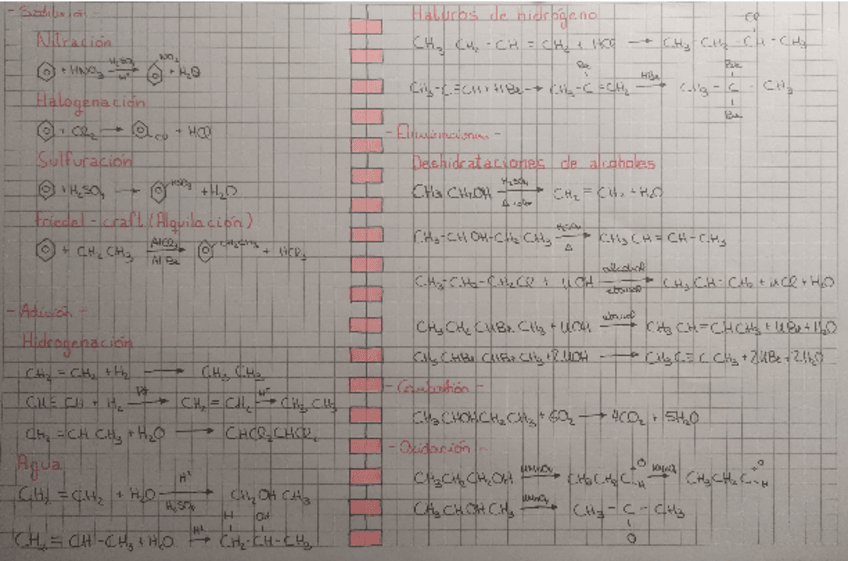 - Sustitución -
Nitración
+ HNO₃ H₂SO₄ H⁺ → NO₂ + H₂O
Halogenación
+ Cl₂ → Cl + HCl
Sulfuración
+ H₂SO₄ → HSO₃ + H₂O
Friedel - craft (Alquilación)
+ CH₂ CH₃ AlCl₃ →
- Adición -
Hidrogenación
CH₂ = CH₂ + H₂ → CH₃ CH₃
CH ≡ CH + H₂ → CH₂ = CH₂ → CH₃ CH₃
CH₂ = CH CH₃ + H₂O →
Agua
CH₂ = CH₂ + H₂O H⁺ H₂SO₄ → CH₂OH CH₃
H OH
CH₂ = CH - CH₃ + H₂O H⁺ → CH₂ - CH - CH₃
Haluros de hidrógeno
Cl
CH₃ CH₂ - CH = CH₂ + HCl → CH₃ - CH₂ CH - CH₃
Br Br
CH₃ - C ≡ CH + HBr → CH₃ - C = CH₂ HBr → CH₃ - C - CH₃
Br
- Eliminación -
Deshidrataciones de alcoholes
CH₃ CH₂OH H₂SO₄ Δ calor → CH₂ = CH₂ + H₂O
CH₃ - CH OH - CH₂ CH₃ H₂SO₄ Δ → CH₃ CH = CH - CH₃
CH₃ - CH₂ - CH₂Cl + KOH alcohol → CH₃ CH - CH₂ + KCl + H₂O
CH₃ CH₂ CHBr CH₃ + KOH → CH₃ CH = CHCH₃ + KBr + H₂O
CH₃ CHBr CHBr CH₃ + 2KOH → CH₃ C ≡ C CH₃ + 2KBr + 2H₂O
- Combustión -
CH₃CHOHCH₂CH₃ + 6O₂ → 4CO₂ + 5H₂O
- Oxidación -
CH₃CH₂CH₂OH KMnO₄ → CH₃CH₂ C O H KMnO₄ → CH₃CH₂ C O H
CH₃ CHOH CH₃ KMnO₄ → CH₃ - C - CH₃
O